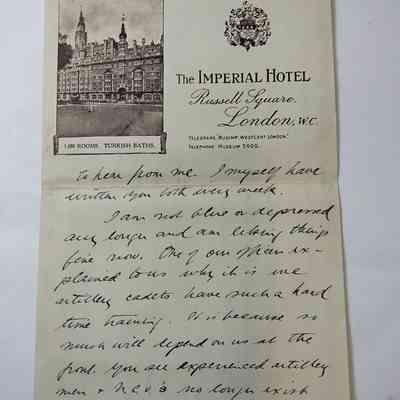 The IMPERIAL HOTEL
Russell Square,
London, W.C.
TELEGRAMS "RUSIMP, WESTCENT LONDON."
TELEPHONE MUSEUM 5600.
ROOMS. TURKISH BATHS.
to hear from me. I myself have
written you both every week.
I am not blue or depressed
any longer and am liking things
fine now. One of our officers ex-
plained to us why it is we
artillery cadets have such a hard
time training. It is because so
much will depend on us at the
front. You see experienced artillery
men & N.C.O's no longer exist